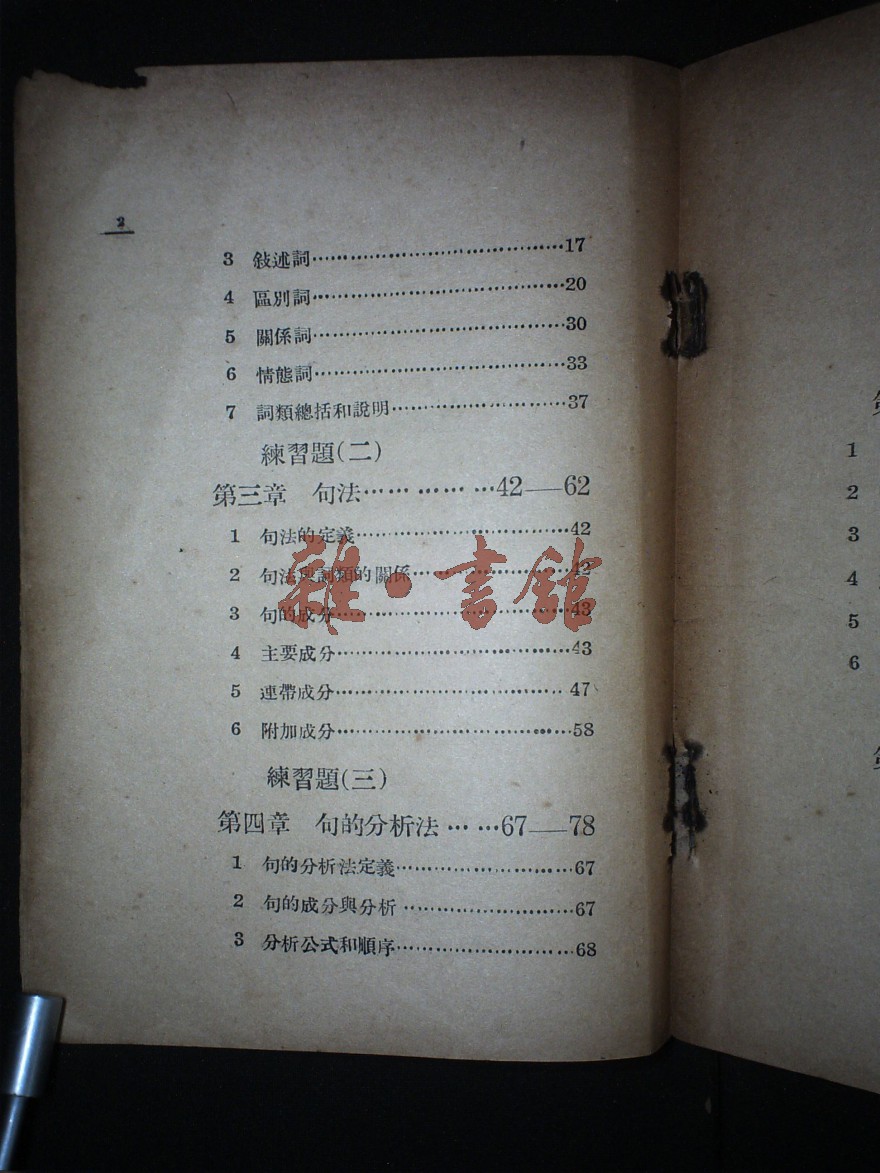 2
3 敍述詞……………………………………17
4 區別詞……………………………………20
5 關係詞……………………………………30
6 情態詞……………………………………33
7 詞類總括和說明…………………………37
練習題(二)
第三章 句法…… …… …… …42——62
1 句法的定義………………………………42
2 句法與詞類的關係………………………42
3 句的成分…………………………………43
4 主要成分…………………………………43
5 連帶成分…………………………………47
6 附加成分…………………………………58
練習題(三)
第四章 句的分析法 … …67——78
1 句的分析法定義…………………………67
2 句的成分與分析…………………………67
3 分析公式和順序…………………………68
雜·書館
1
2
3
4
5
6